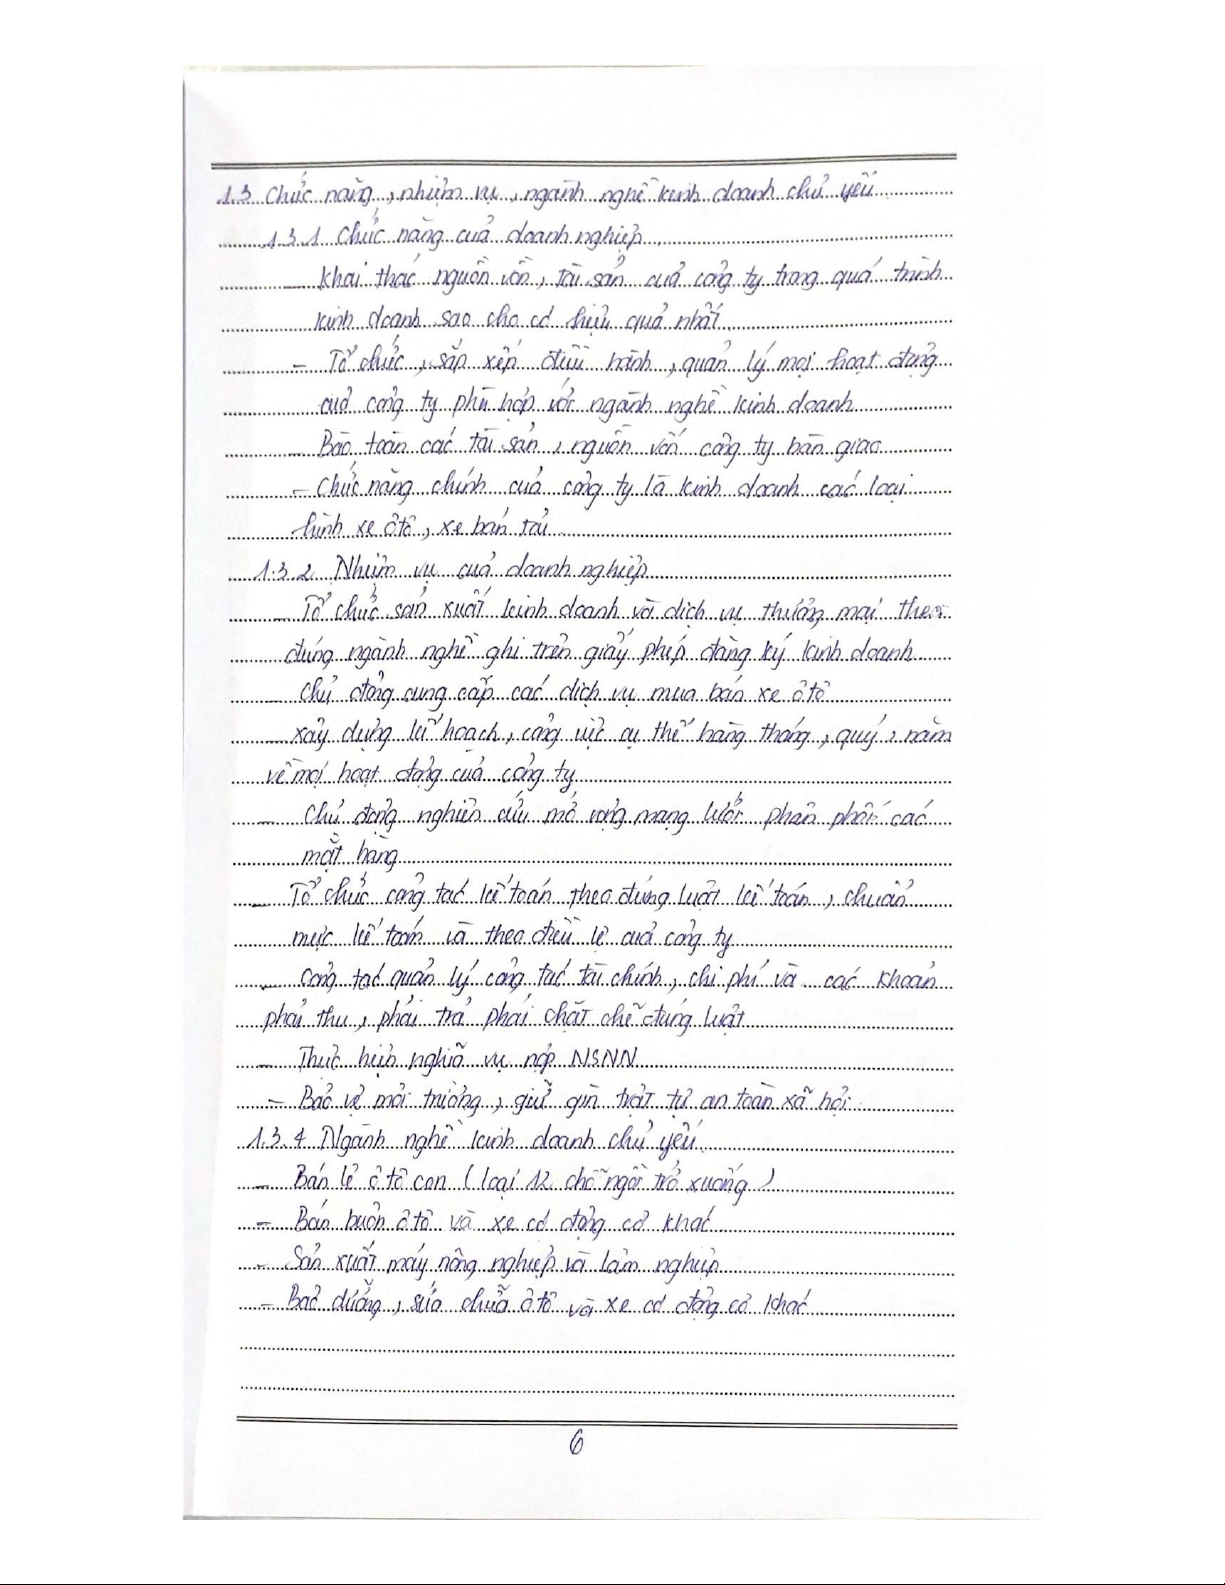 1.3 Chức năng, nhiệm vụ, ngành nghề kinh doanh chủ yếu
1.3.1 Chức năng của doanh nghiệp
– Khai thác nguồn vốn, tài sản của công ty trong quá trình
kinh doanh sao cho có hiệu quả nhất
– Tổ chức, sắp xếp điều hành, quản lý mọi hoạt động
của công ty phù hợp với ngành nghề kinh doanh
– Bảo toàn các tài sản, nguồn vốn công ty bàn giao
– Chức năng chính của công ty là kinh doanh các loại
hình xe ô tô, xe bán tải
1.3.2 Nhiệm vụ của doanh nghiệp
– Tổ chức sản xuất kinh doanh và dịch vụ thương mại theo
đúng ngành nghề ghi trên giấy phép đăng ký kinh doanh
– Chủ động cung cấp các dịch vụ mua bán xe ô tô
– xây dựng kế hoạch, công việc cụ thể hàng tháng, quý, năm
về mọi hoạt động của công ty
– Chủ động nghiên cứu mở rộng mạng lưới phân phối các
mặt hàng
– Tổ chức công tác kế toán theo đúng luật kế toán, chuẩn
mực kế toán và theo điều lệ của công ty
– Công tác quản lý công tác tài chính, chi phí và các khoản
phải thu, phải trả phải chặt chẽ đúng luật
– Thực hiện nghĩa vụ nộp NSNN
– Bảo vệ môi trường, giữ gìn trật tự an toàn xã hội
1.3.4 Ngành nghề kinh doanh chủ yếu
– Bán lẻ ô tô con (loại 12 chỗ ngồi trở xuống)
– Bán buôn ô tô và xe có động cơ khác
– Sản xuất máy nông nghiệp và lâm nghiệp
– Bảo dưỡng, sửa chữa ô tô và xe có động cơ khác
6